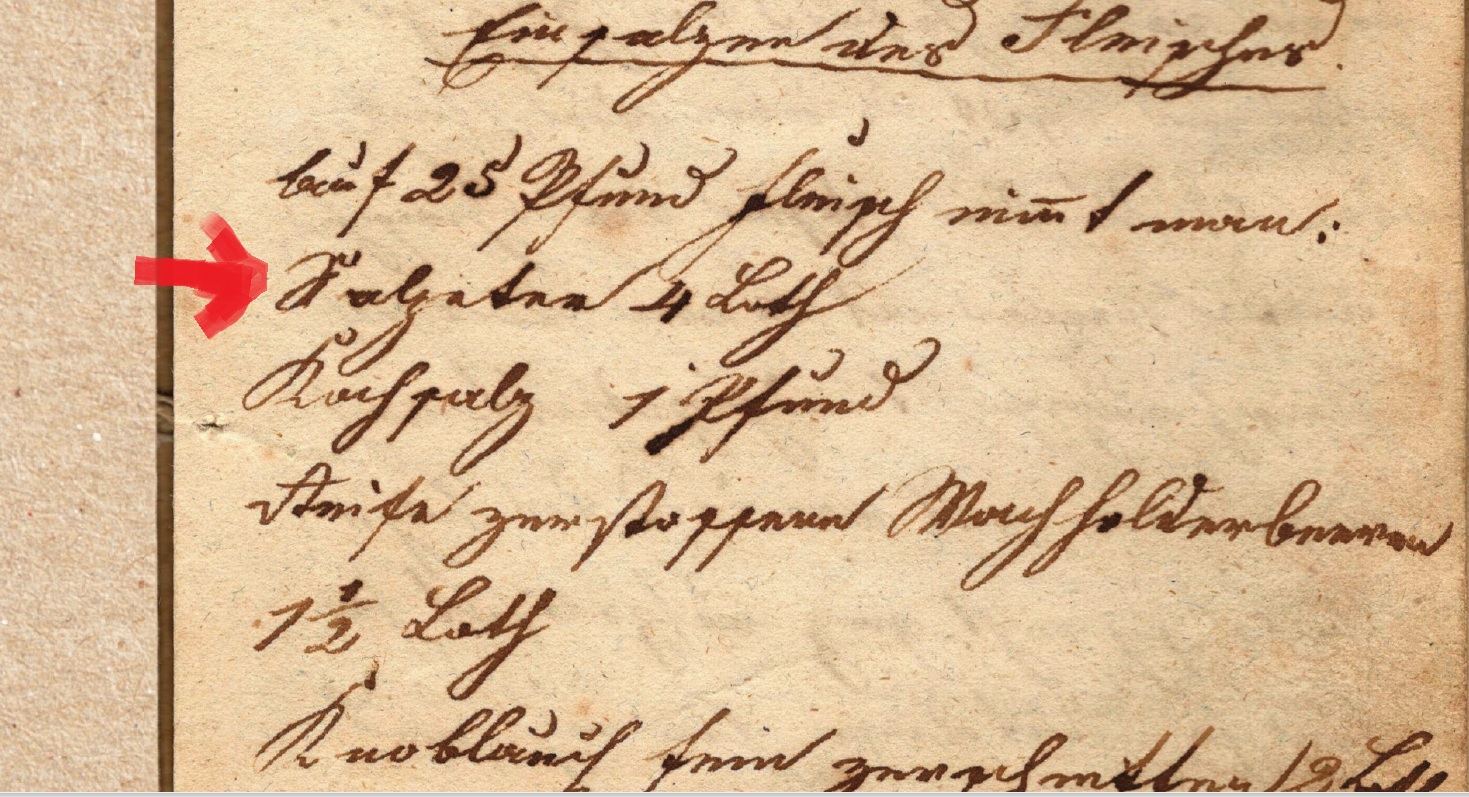 Einsalzen des Fleisches.
auf 25 Pfund Fleisch nim̅t man:
Salzeter 4 Loth
Kochsalz 1 Pfund
Reife zerstossene Wachholderbeeren
1 1/2 Loth
Knoblauch fein zerschnitten